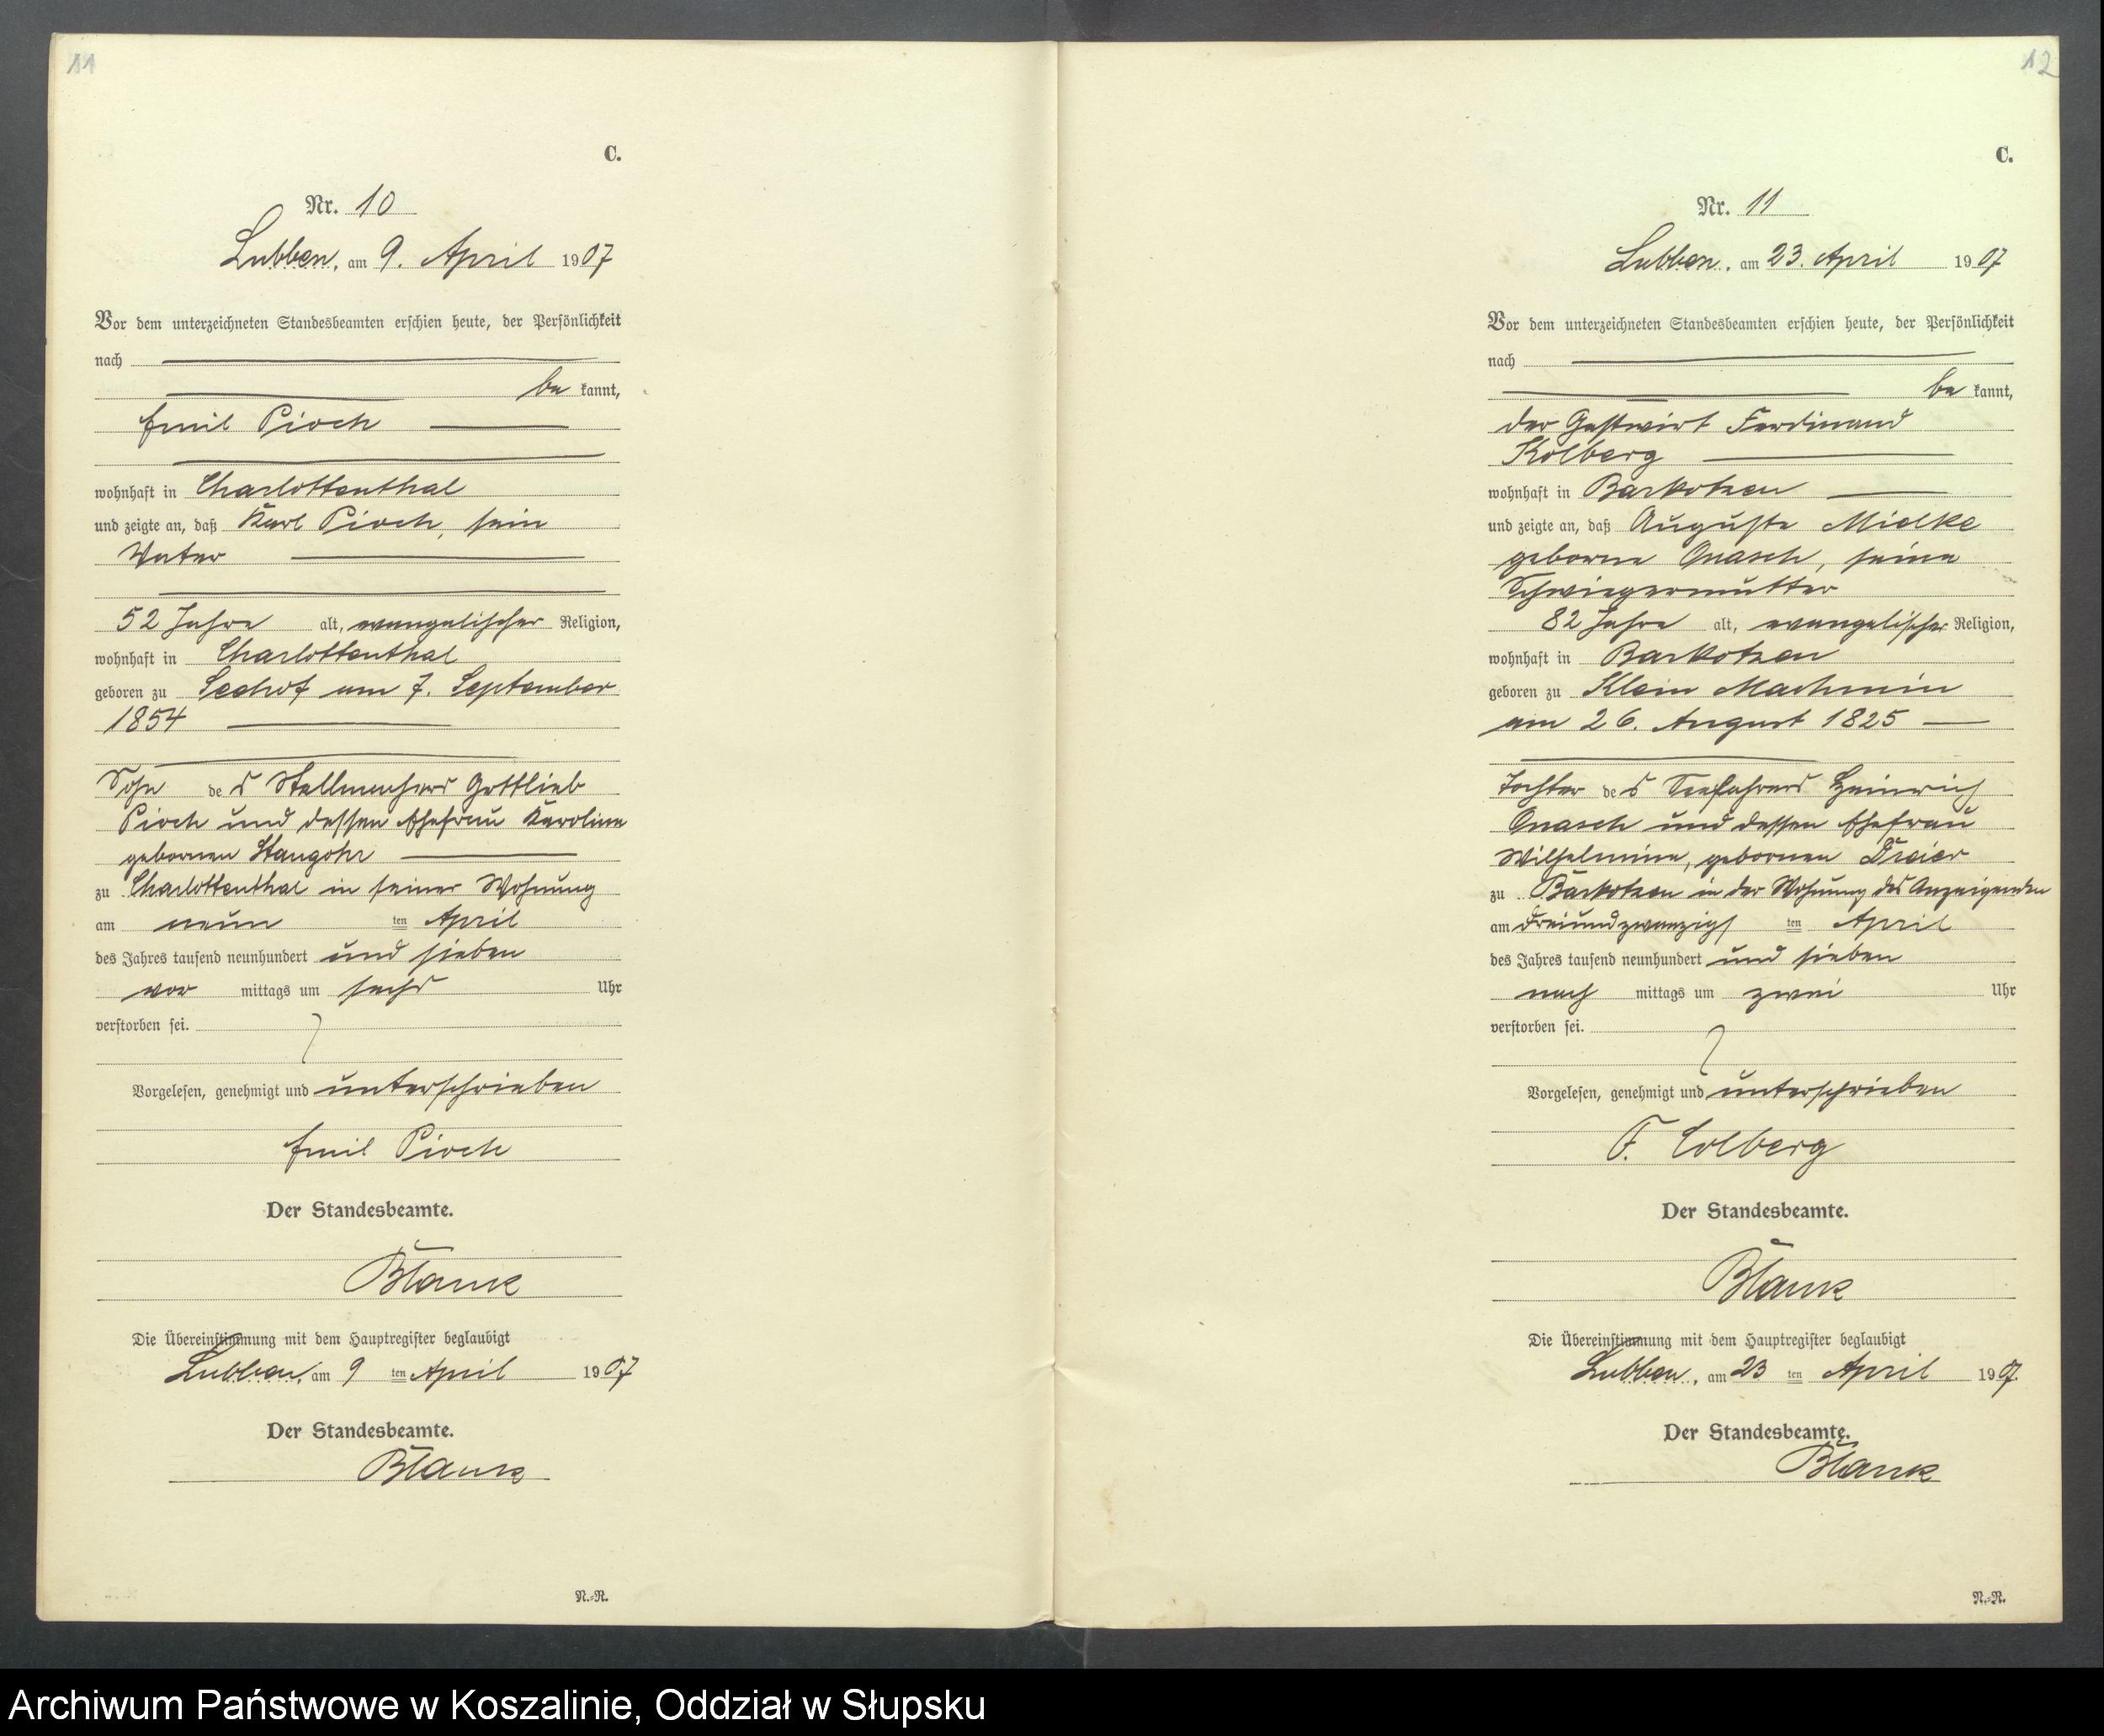 11
C.
Nr. 10
Lubben, am 9. April 1907
Vor dem unterzeichneten Standesbeamten erschien heute, der Persönlichkeit
nach
be kannt,
Emil Pioch
wohnhaft in Charlottenthal
und zeigte an, daß Karl Pioch, sein
Vater
52 Jahre alt, evangelischer Religion,
wohnhaft in Charlottenthal
geboren zu Seehof am 7. September
1854
Sohn des Stellmachers Gottlieb
Pioch und dessen Ehefrau Karoline
gebornen Stangohr
zu Charlottenthal in seiner Wohnung
am neun ten April
des Jahres tausend neunhundert und sieben
vor mittags um sechs Uhr
verstorben sei.
Vorgelesen, genehmigt und unterschrieben
Emil Pioch
Der Standesbeamte.
Blank
Die Übereinstimmung mit dem Hauptregister beglaubigt
Lubben, am 9 ten April 1907
Der Standesbeamte.
Blank
N.-R.
12
C.
Nr. 11
Lubben, am 23. April 1907
Vor dem unterzeichneten Standesbeamten erschien heute, der Persönlichkeit
nach
be kannt,
der Gastwirt Ferdinand
Kolberg
wohnhaft in Barkotzen
und zeigte an, daß Auguste Mielke
geborne Onasch, seine
Schwiegermutter
82 Jahre alt, evangelischer Religion,
wohnhaft in Barkotzen
geboren zu Klein Machmin
am 26. August 1825
Tochter des Seefahrers Heinrich
Onasch und dessen Ehefrau
Wilhelmine, gebornen Dreier
zu Barkotzen in der Wohnung des Anzeigenden
am dreiundzwanzigs ten April
des Jahres tausend neunhundert und sieben
nach mittags um zwei Uhr
verstorben sei.
Vorgelesen, genehmigt und unterschrieben
F. Colberg
Der Standesbeamte.
Blank
Die Übereinstimmung mit dem Hauptregister beglaubigt
Lubben, am 23 ten April 1907.
Der Standesbeamte.
Blank
N.-R.
Archiwum Państwowe w Koszalinie, Oddział w Słupsku